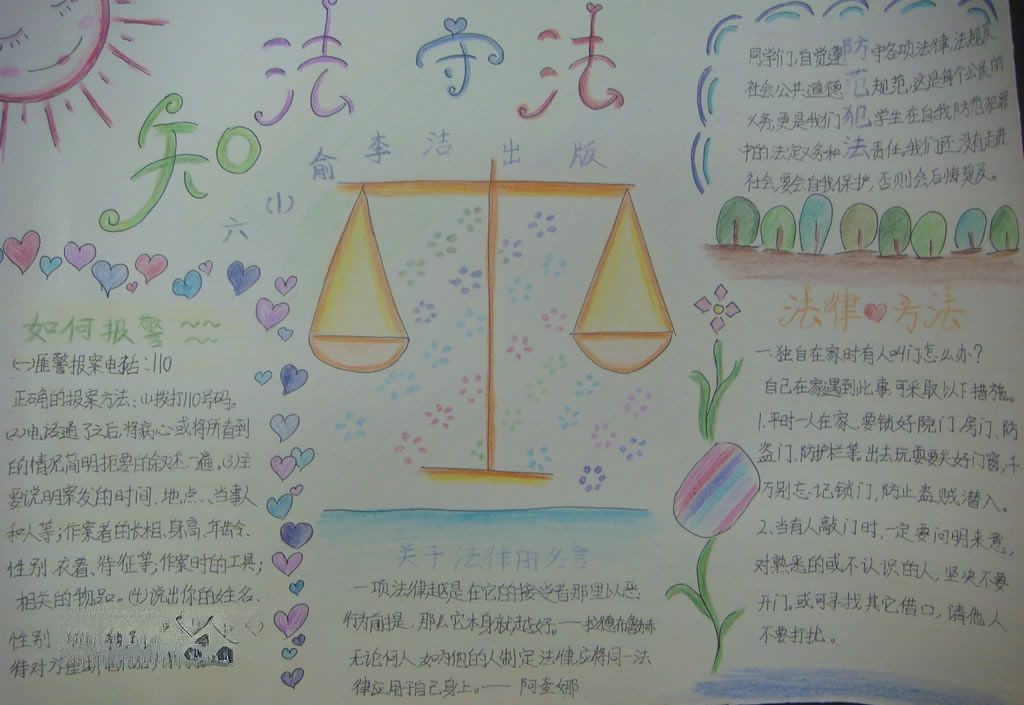 知法守法
六(1)俞李洁出版
同学们,自觉遵守各项法律,法规及
社会公共道德规范,这是每个公民的
义务,更是我们学生在自我防范犯罪
中的法定义务和责任。我们还没有走进
社会,要会自我保护,否则会后悔莫及。
防范犯法
如何报警
(一)匪警报案电话:110
正确的报案方法:(1)拨打110号码。
(2)电话通了之后,将病心或将所看到
的情况简明扼要的叙述一遍。(3)主
要说明案发的时间、地点、当事人
和人等;作案者的长相、身高、年龄、
性别、衣着、特征等;作案时的工具;
相关的物品。(4)说出你的姓名、
性别
待对方
关于法律的名言
一项法律越是在它的接受者那里以恶
行为前提,那么它本身就越好。——拉德布鲁赫
无论何人,如为他的人制定法律,应将同一法
律应用于自己身上。——阿奎娜
法律方法
一.独自在家时有人叫门怎么办?
自己在家遇到此事,可采取以下措施。
1.平时一人在家、要锁好院门、房门、防
盗门、防护栏等。出去玩耍要关好门窗,千
万别忘记锁门,防止盗贼潜入。
2.当有人敲门时,一定要问明来意,
对熟悉的或不认识的人,坚决不要
开门。或可寻找其它借口,请他人
不要打扰。